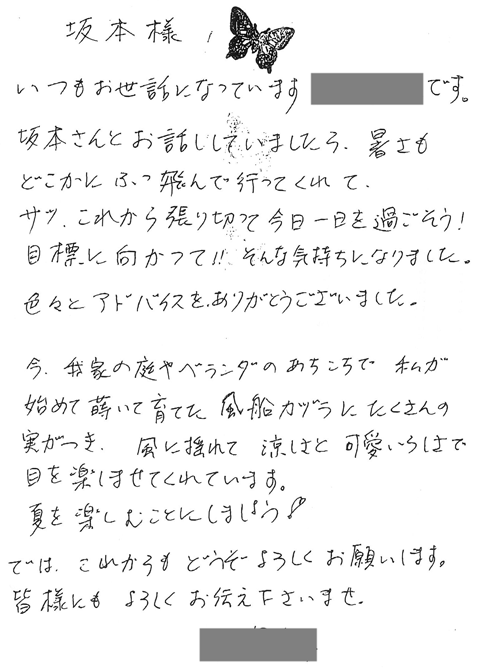 坂本様
いつもお世話になっています です。
坂本さんとお話ししていましたら、暑さも
どこかにふっ飛んで行ってくれて、
サッ、これから張り切って今日一日を過ごそう!
目標に向かって!! そんな気持ちになりました。
色々とアドバイスを、ありがとうございました。
今、我家の庭やベランダのあちこちで 私が
始めて蒔いて育てた 風船カヅラに たくさんの
実がつき、風に揺れて 涼しさと 可愛いらしさで
目を楽しませてくれています。
夏を楽しむことにしましょう!
では、これからも どうぞ よろしく お願いします。
皆様にも よろしく お伝え下さいませ。